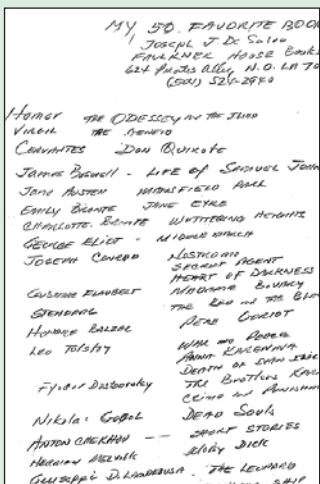 MY 50 FAVORITE BOOK
JOSEPH J. DeSalvo
FAULKNER HOUSE BOOKS
624 Pirates Alley, N.O. LA 70
(504) 524-2940
Homer THE ODESSEY and THE ILIAD
VIRGIL THE AENEID
CERVANTES DON QUIXOTE
James Boswell - LIFE of SAMUEL JOHN
Jane AUSTEN MANSFIELD PARK
EMILY BRONTE JANE EYRE
CHARLOTTE BRONTE WUTTERING HEIGHTS
GEORGE ELIOT - MIDDLEMARCH
JOSEPH CONRAD NOSTROMO
SECRET AGENT
HEART OF DARKNESS
GUSTAVE FLAUBERT MADAME BOVARY
STENDAHL THE RED and THE BLA
HONORE BALZAC PERE GORIOT
Leo Tolstoy WAR and PEACE
ANNA KARENINA
DEATH OF IVAN
Fyodor Dostoevsky THE BROTHERS KARA
CRIME and PUNISHM
Nikolai GOGOL DEAD Souls
ANTON CHEKHOV -- SHORT STORIES
HERMAN MELVILLE MOBY DICK
Giuseppe Di LAMPEDUSA. THE LEOPARD
SHIP